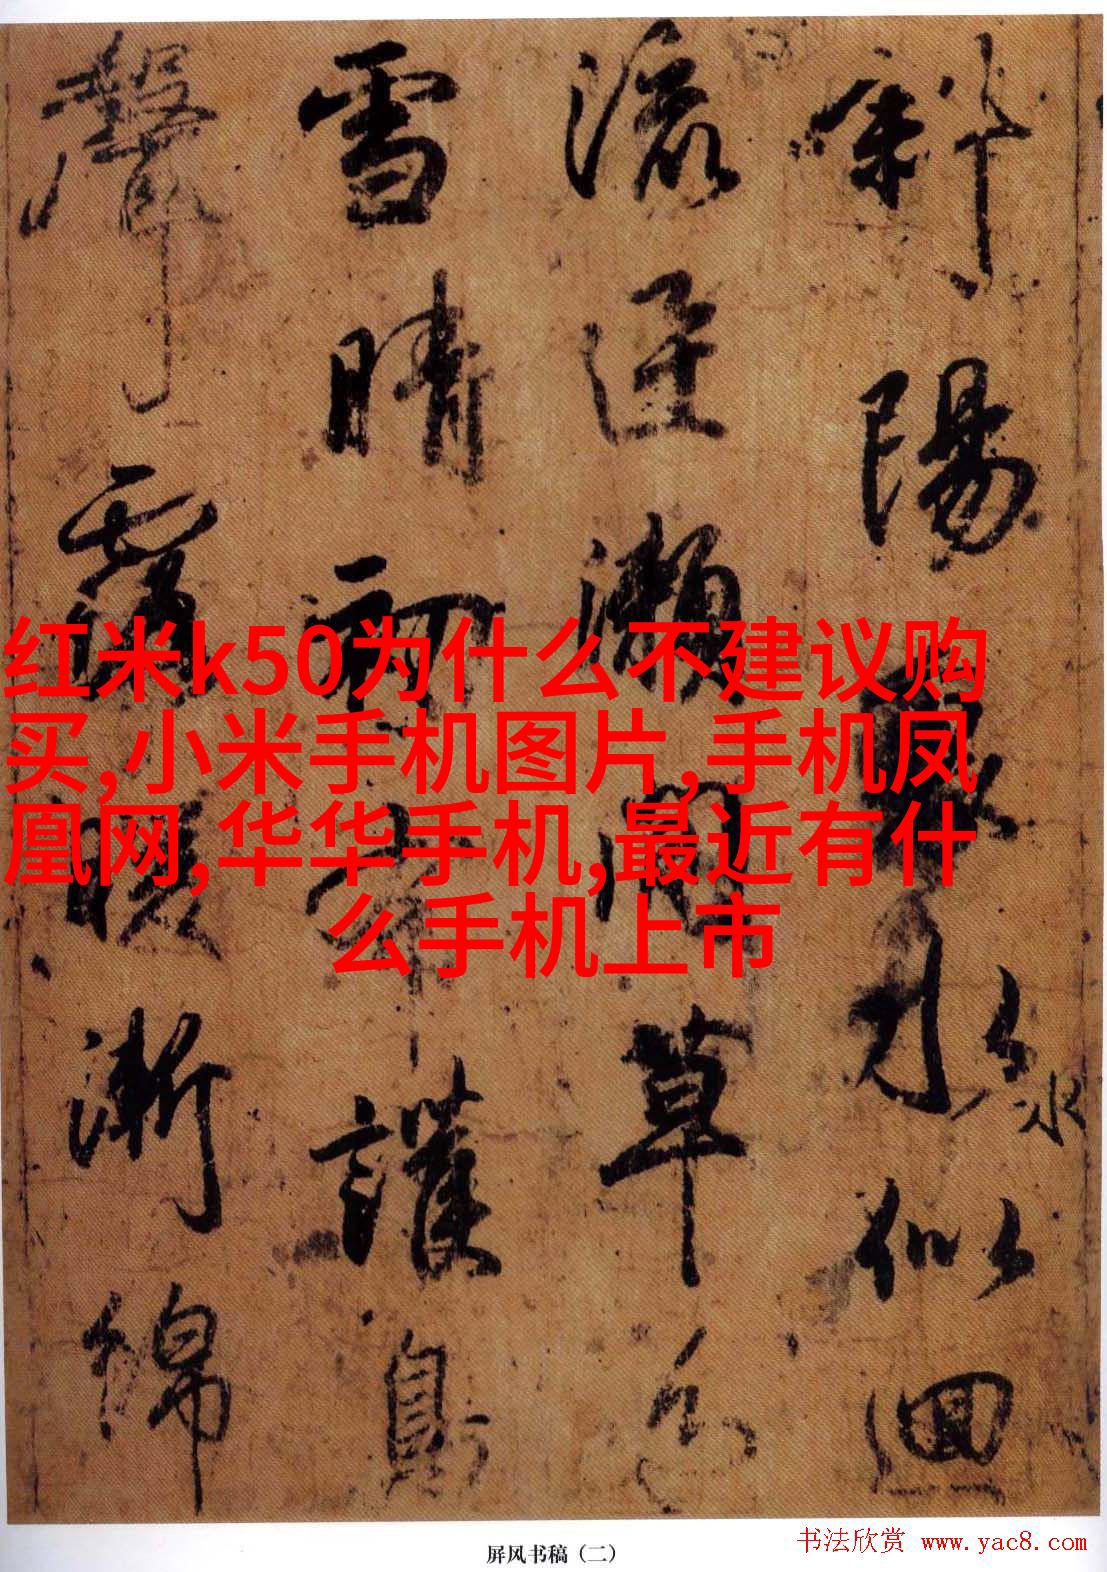 斜陽水似
流瀨草色
雪晴初護
聲漸綿
红米k50为什么不建议购
买,小米手机图片,手机凤
凰网,华华手机,最近有什
么手机上市
屏风书稿（二）
书法欣赏 www.yac8.com